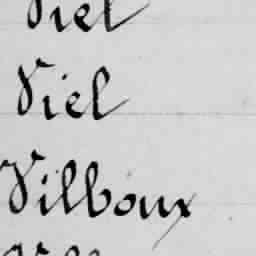 Viel
Viel
Vilboux